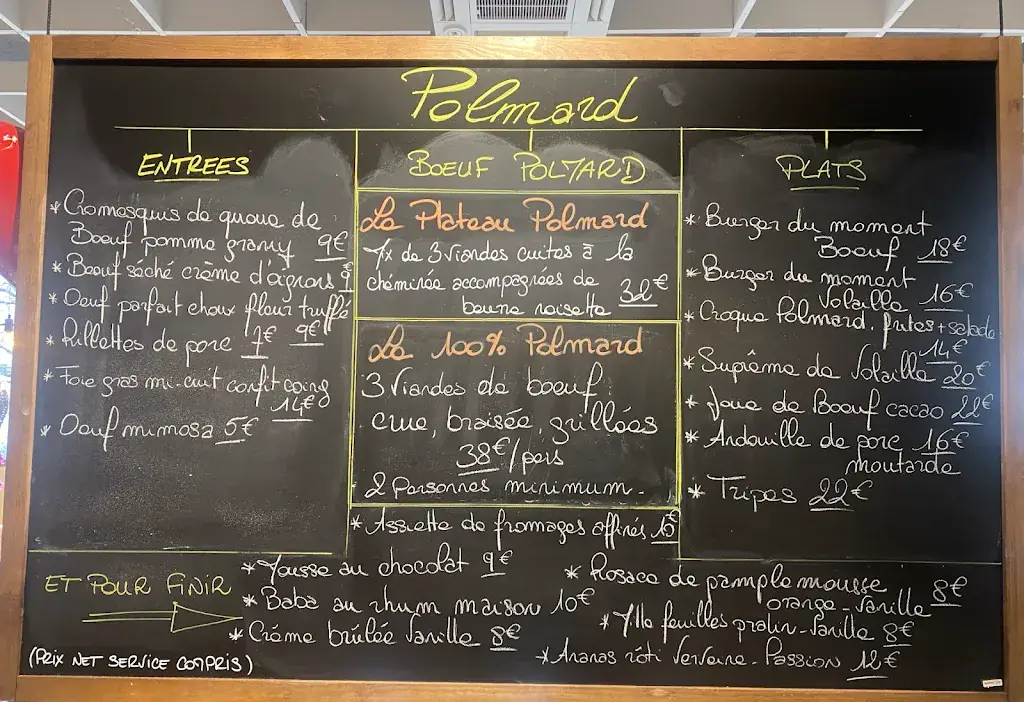 Polmard
ENTREES
* Cromesquis de queue de
Boeuf pomme granny 9€
* Boeuf séché crème d'oignons 9€
* Oeuf parfait choux fleur truffé
9€
* Rillettes de porc 7€
* Foie gras mi-cuit confit coing
14€
* Oeuf mimosa 5€
BOEUF POLMARD
Le Plateau Polmard
Mx de 3 viandes cuites à la
cheminée accompagnées de
beurre noisette 32€
Le 100% Polmard
3 Viandes de boeuf
crue, braisée, grillées
38€/pers
2 Personnes minimum-
* Assiette de fromages affinés 15€
PLATS
* Burger du moment
Boeuf 18€
* Burger du moment
Volaille 16€
* Croque Polmard, frites + salade
14€
* Suprême de Volaille 20€
* Joue de Boeuf cacao 22€
* Andouille de porc 16€
moutarde
* Tripes 22€
ET POUR FINIR
* Mousse au chocolat 9€
* Baba au rhum maison 10€
* Crème brûlée Vanille 8€
* Rosace de pamplemousse
orange-vanille 8€
* Mille feuilles pralin-Vanille 8€
* Ananas rôti Verveine-Passion 12€
(PRIX NET SERVICE COMPRIS)